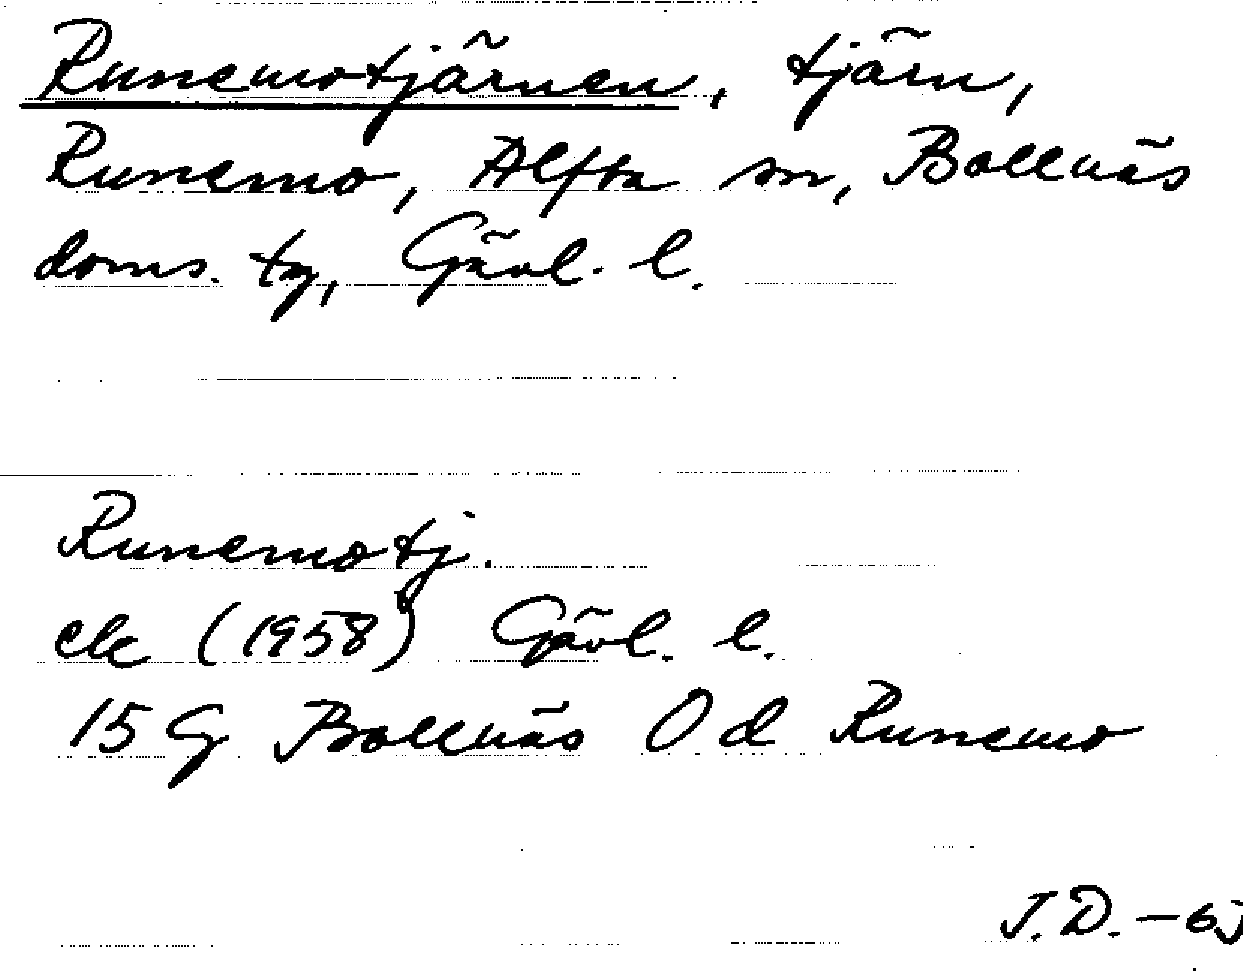 Runemotjärnen, tjärn,
Runemo, Alfta sn, Bollnäs
doms. tg, Gävl. l.
Runemotj.
ek (1958) Gävl. l.
15 G Bollnäs O d Runemo
J.D. –